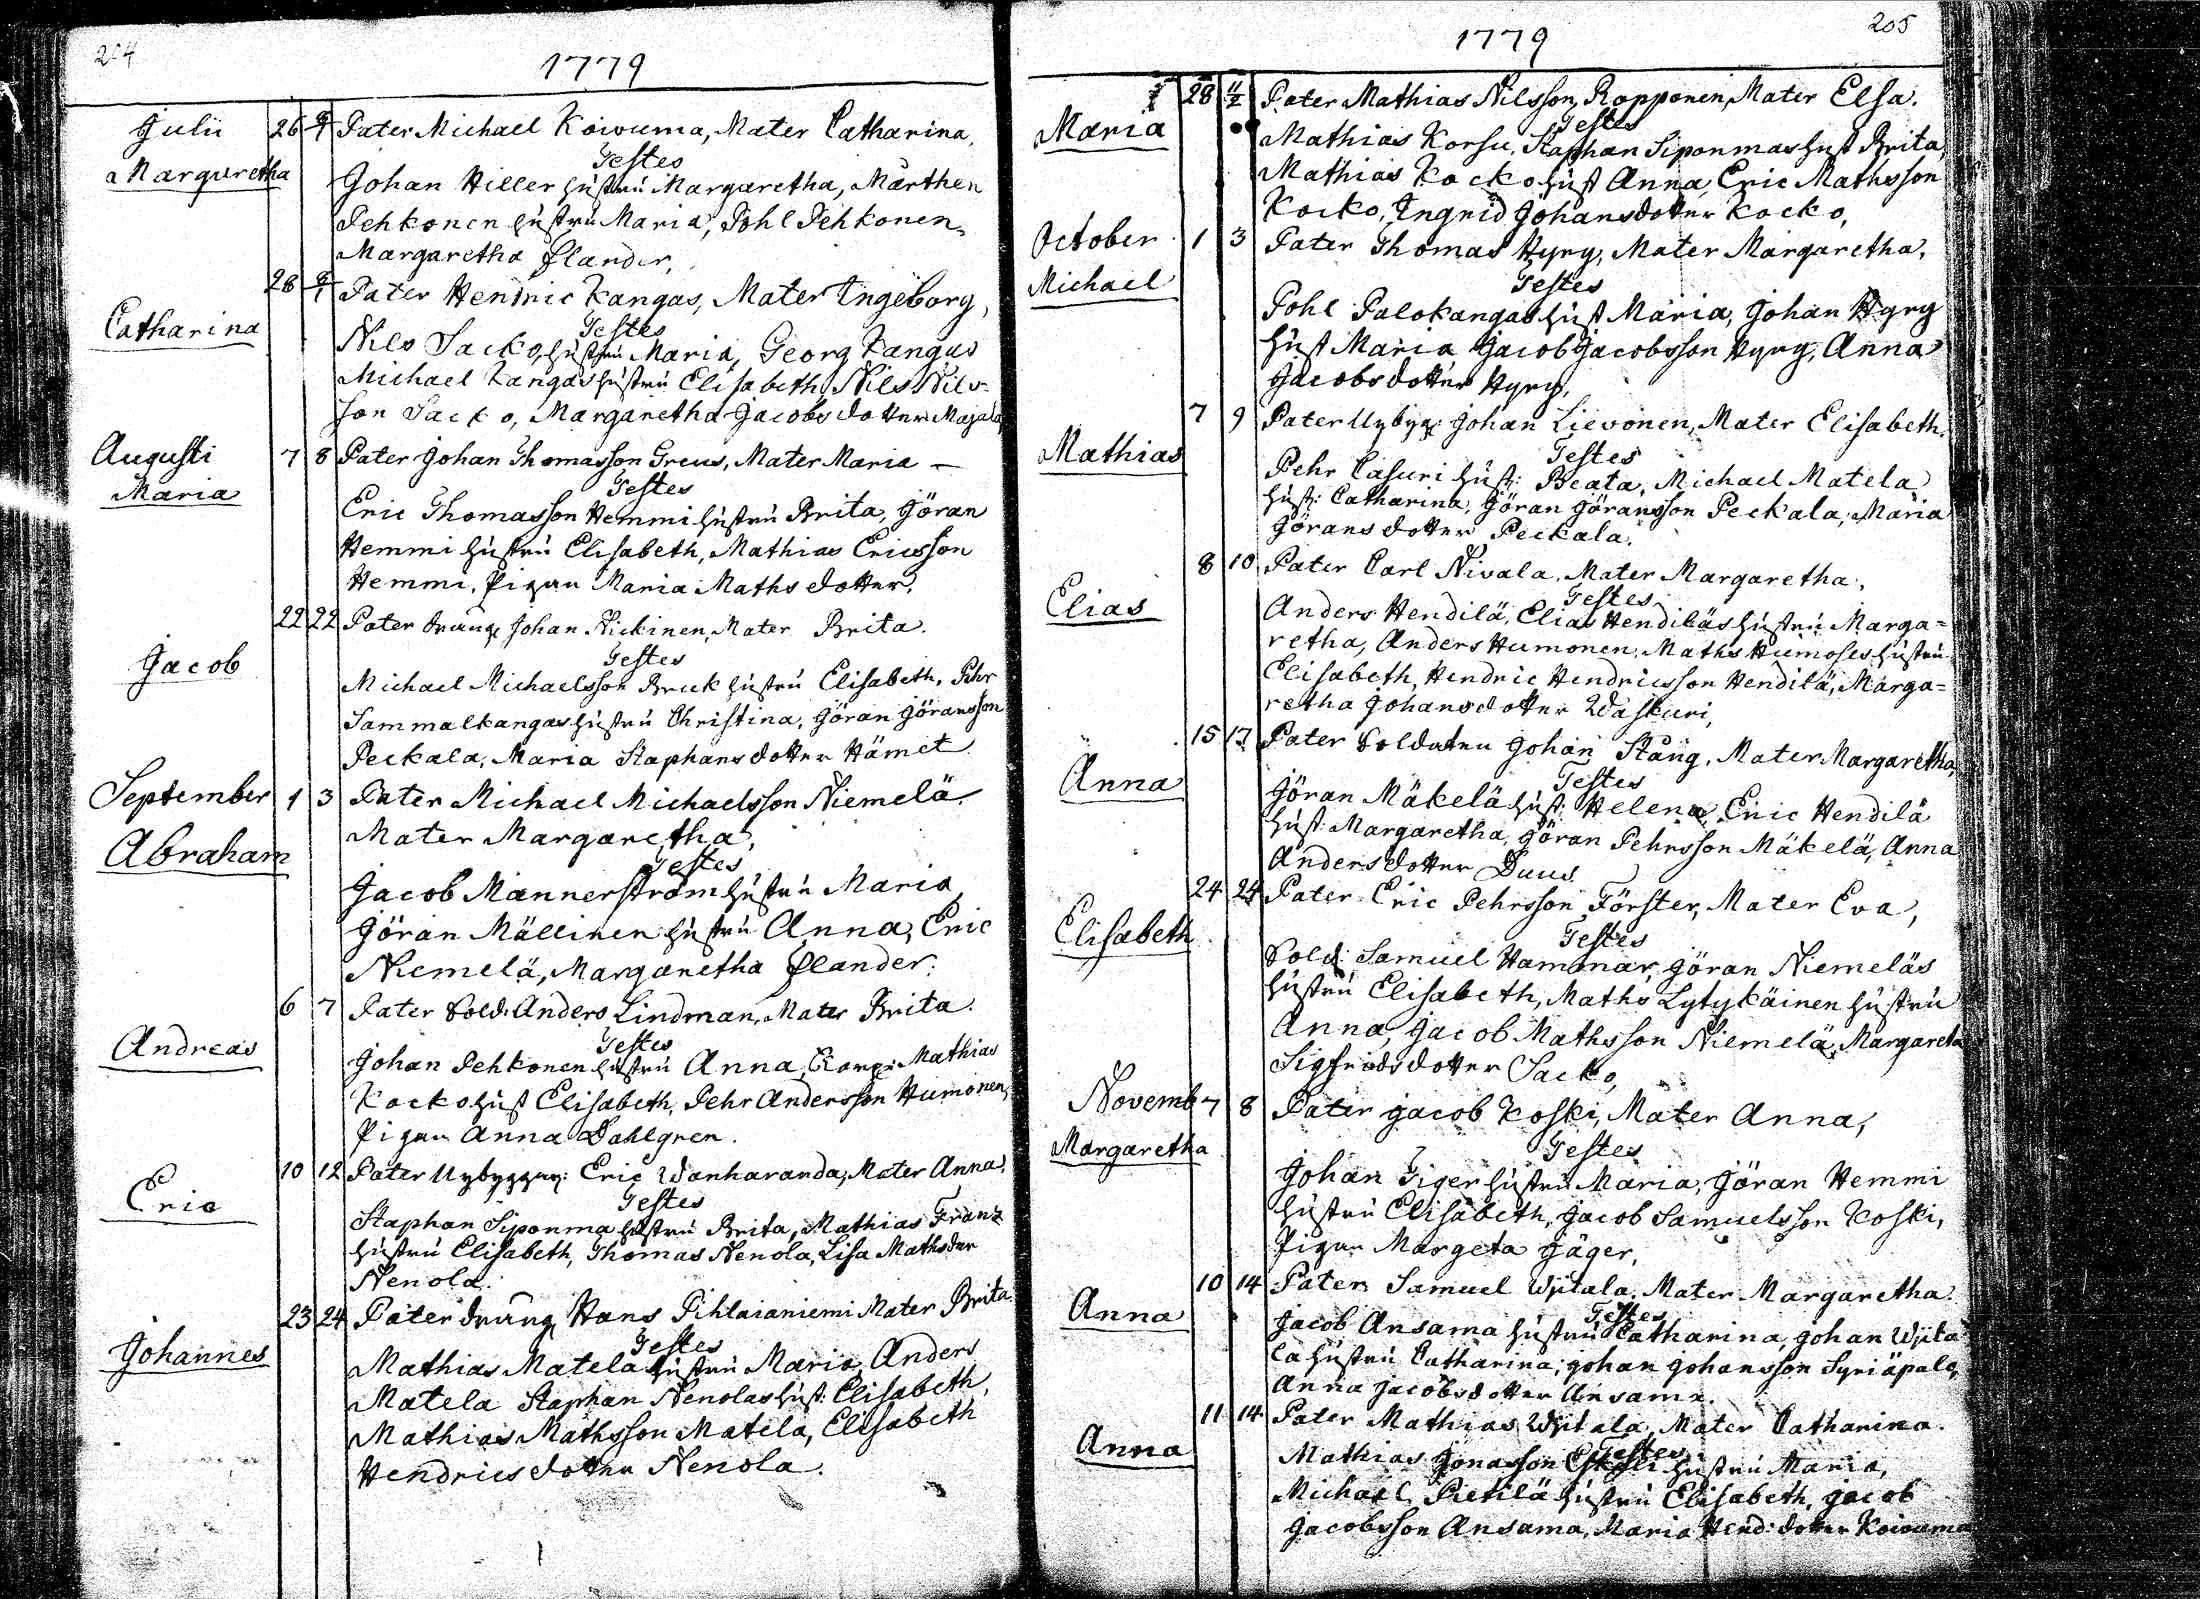 204
1779
Julii 26 8/1 Pater Michael Koivuma, Mater Catharina,
Margaretha
Testes
Johan Hiller hustru Margaretha, Marthen
Pehkonen hustru Maria, Pohl Pehkonen,
Margaretha Elander,
28 8/1 Pater Hendric Kangas, Mater Ingeborg,
Catharina
Testes
Nils Sacko, hustru Maria, Georg Kangas
Michael Kangas hustru Elisabeth, Nils Nils-
son Sacko, Margaretha Jacobs dotter Majala
Augusti 7 8 Pater Johan Thomasson Greus, Mater Maria —
Maria
Testes
Eric Thomasson Hemmi hustru Brita, Göran
Hemmi hustru Elisabeth, Mathias Ericsson
Hemmi, Pigan Maria Maths dotter.
22 22 Pater dräng Johan Nickinen, Mater Brita.
Jacob
Testes
Michael Michaelsson Bruk hustru Elisabeth, Pehr
Sammalkangas hustru Christina, Göran Göransson
Peckala, Maria Staphans dotter Hämet
September 1 3 Pater Michael Michaelsson Niemelä.
Mater Margaretha,
Abraham
Testes
Jacob Mannerström hustru Maria
Göran Mällinen hustru Anna, Eric
Niemelä, Margaretha Elander.
6 7 Pater Sold: Anders Lindman, Mater Brita.
Andreas
Testes
Johan Pehkonen hustru Anna, Corp: Mathias
Kocko hust Elisabeth, Pehr Andersson Humonen,
Pigan Anna Dahlgren.
10 12 Pater Nybyggar: Eric Wanharanda, Mater Anna.
Eric
Testes
Staphan Siponma hustru Brita, Mathias Franz
hustru Elisabeth, Thomas Nenola, Lisa Mathsder
Nenola.
23 24 Pater dräng Hans Pihlaianiemi Mater Brita
Johannes
Testes
Mathias Matela hustru Maria, Anders
Matela Staphan Nenolas hust: Elisabeth,
Mathias Mathsson Matela, Elisabeth
Hendrics dotter Nenola.
205
1779
28 Pater Mathias Nilsson, Ropponen, Mater Elsa.
Maria
Testes
Mathias Korsu, Staphan Siponmas hust Brita,
Mathias Kocko hust Anna, Eric Mathsson
Kocko, Ingrid Johansdotter Kocko,
October 1 3 Pater Thomas Hyry, Mater Margaretha,
Michael
Testes
Pohl Palokangas hust Maria, Johan Hyry
hust Maria Jacob Jacobsson Hyry, Anna
Jacobsdotter Hyry,
7 9 Pater Nybyg: Johan Lievonen, Mater Elisabeth.
Mathias
Testes
Pehr Casuri hust: Beata, Michael Matela
hust: Catharina, Göran Göransson Peckala, Maria
Görans dotter Peckala.
8 10 Pater Carl Nivala, Mater Margaretha,
Elias
Testes
Anders Hendilä, Elias Hendiläs hustru Marga=
retha, Anders Humonen, Maths Humoses hustru
Elisabeth, Hendric Hendricsson Hendilä, Marga=
retha Johansdotter Waskuri,
15 17 Pater Soldaten Johan Stång, Mater Margaretha,
Anna
Testes
Göran Mäkelä hust: Helena, Eric Hendilä
hust: Margaretha, Göran Pehrsson Mäkelä, Anna
Andersdotter Duus
24 24 Pater Eric Pehrsson Förster, Mater Eva,
Elisabeth
Testes
Sold: Samuel Hammar, Göran Niemeläs
hustru Elisabeth, Maths Lytykäinen hustru
Anna, Jacob Mathsson Niemelä, Margareta
Sigfridsdotter Sacko,
Novemb 7 8 Pater Jacob Koski, Mater Anna,
Margaretha
Testes
Johan Tiger hustru Maria, Göran Hemmi
hustru Elisabeth, Jacob Samuelsson Koski,
Pigan Margeta Jäger,
10 14 Pater Samuel Wjitala, Mater Margaretha.
Anna
Testes
Jacob Ansama hustru Catharina, Johan Wjita
la hustru Catharina, Johan Johansson Syriäpale,
Anna Jacobsdotter Ansama.
11 14 Pater Mathias Wjitala, Mater Catharina.
Anna
Testes
Mathias Jonasson Eskeli hustru Maria,
Michael Pietilä hustru Elisabeth, Jacob
Jacobsson Ansama, Maria Hend: dotter Koivuma